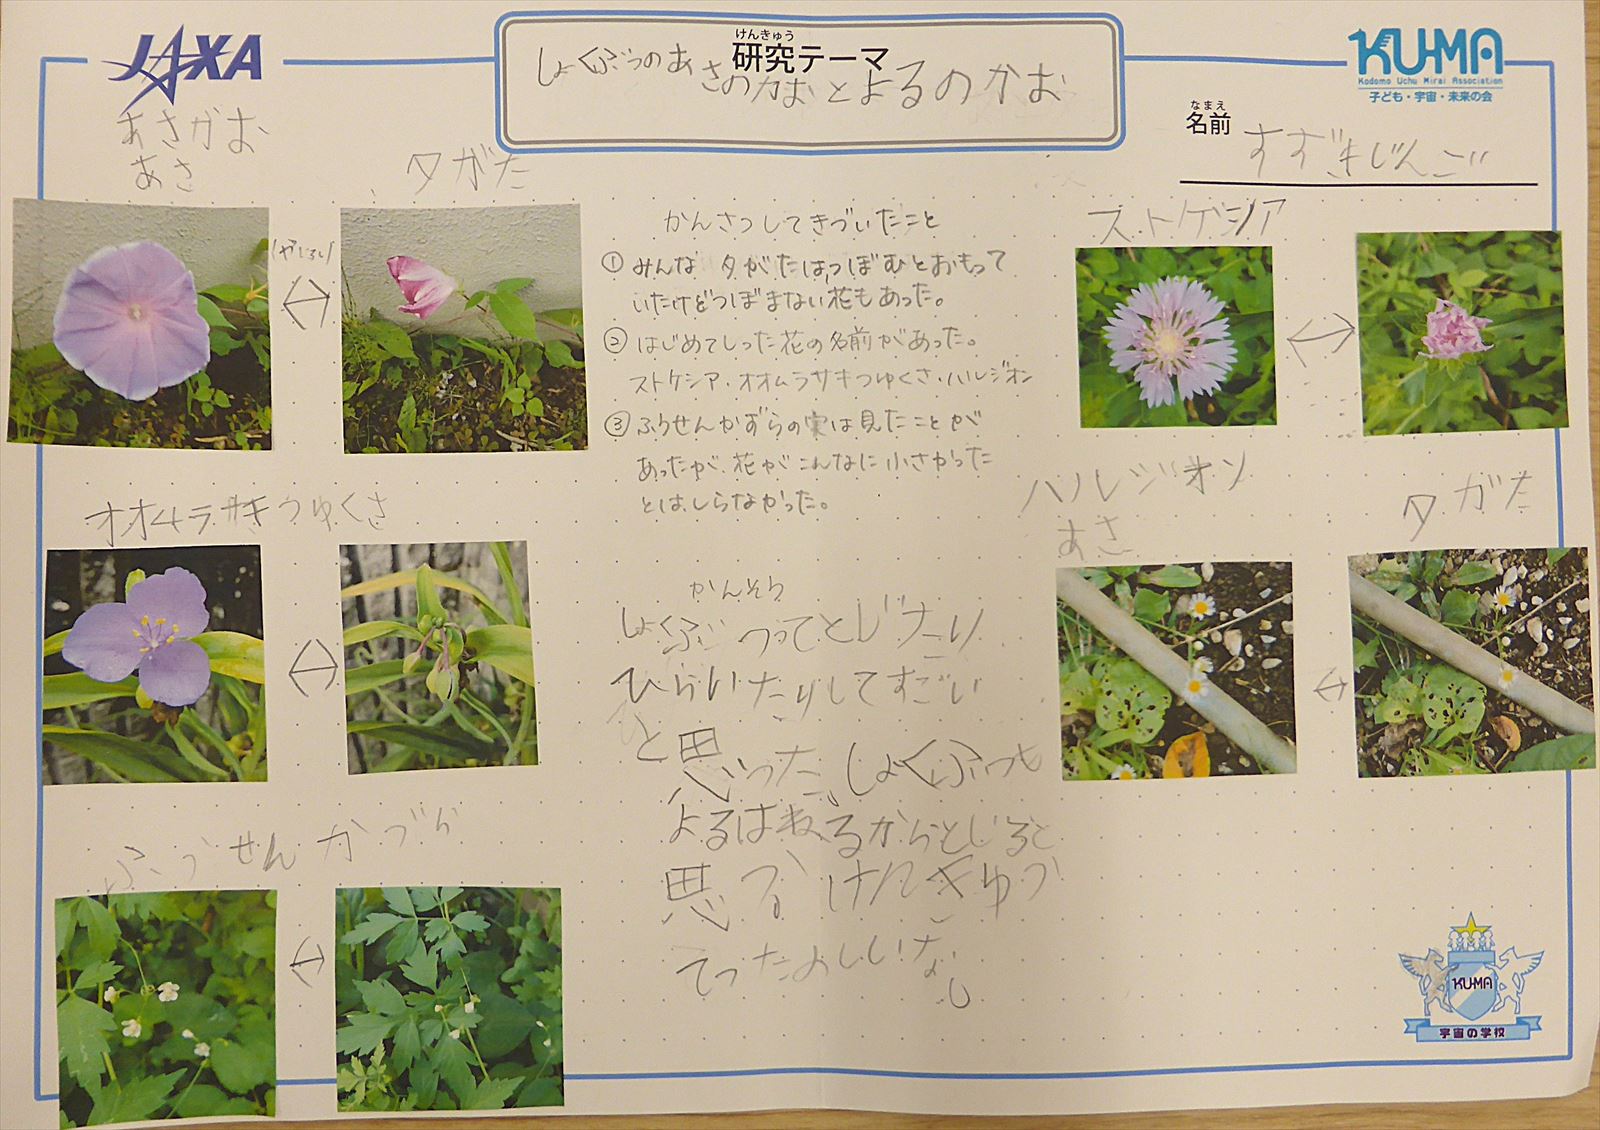 JAXA
けんきゅう
研究テーマ
しょくぶつのあさのかおとよるのかお
KU-MA
Kodomo Uchu Mirai Association
子ども・宇宙・未来の会
なまえ
名前
すずきじんご
あさがお
あさ
夕がた
(やじるし)
かんさつしてきづいたこと
① みんな 夕がたはつぼむとおもって
いたけどつぼまない花もあった。
② はじめてしった花の名前があった。
ストケシア・オオムラサキつゆくさ・ハルジオン
③ ふうせんかずらの実は見たことが
あったが、花がこんなに小さかった
とはしらなかった。
ストケシア
オオムラサキつゆくさ
ハルジオン
あさ
夕がた
ふうせんかづら
かんそう
しょくぶつってとじたり
ひらいたりしてすごい
と思った。しょくぶつも
よるはねるからとじると
思う
KU-MA
宇宙の学校